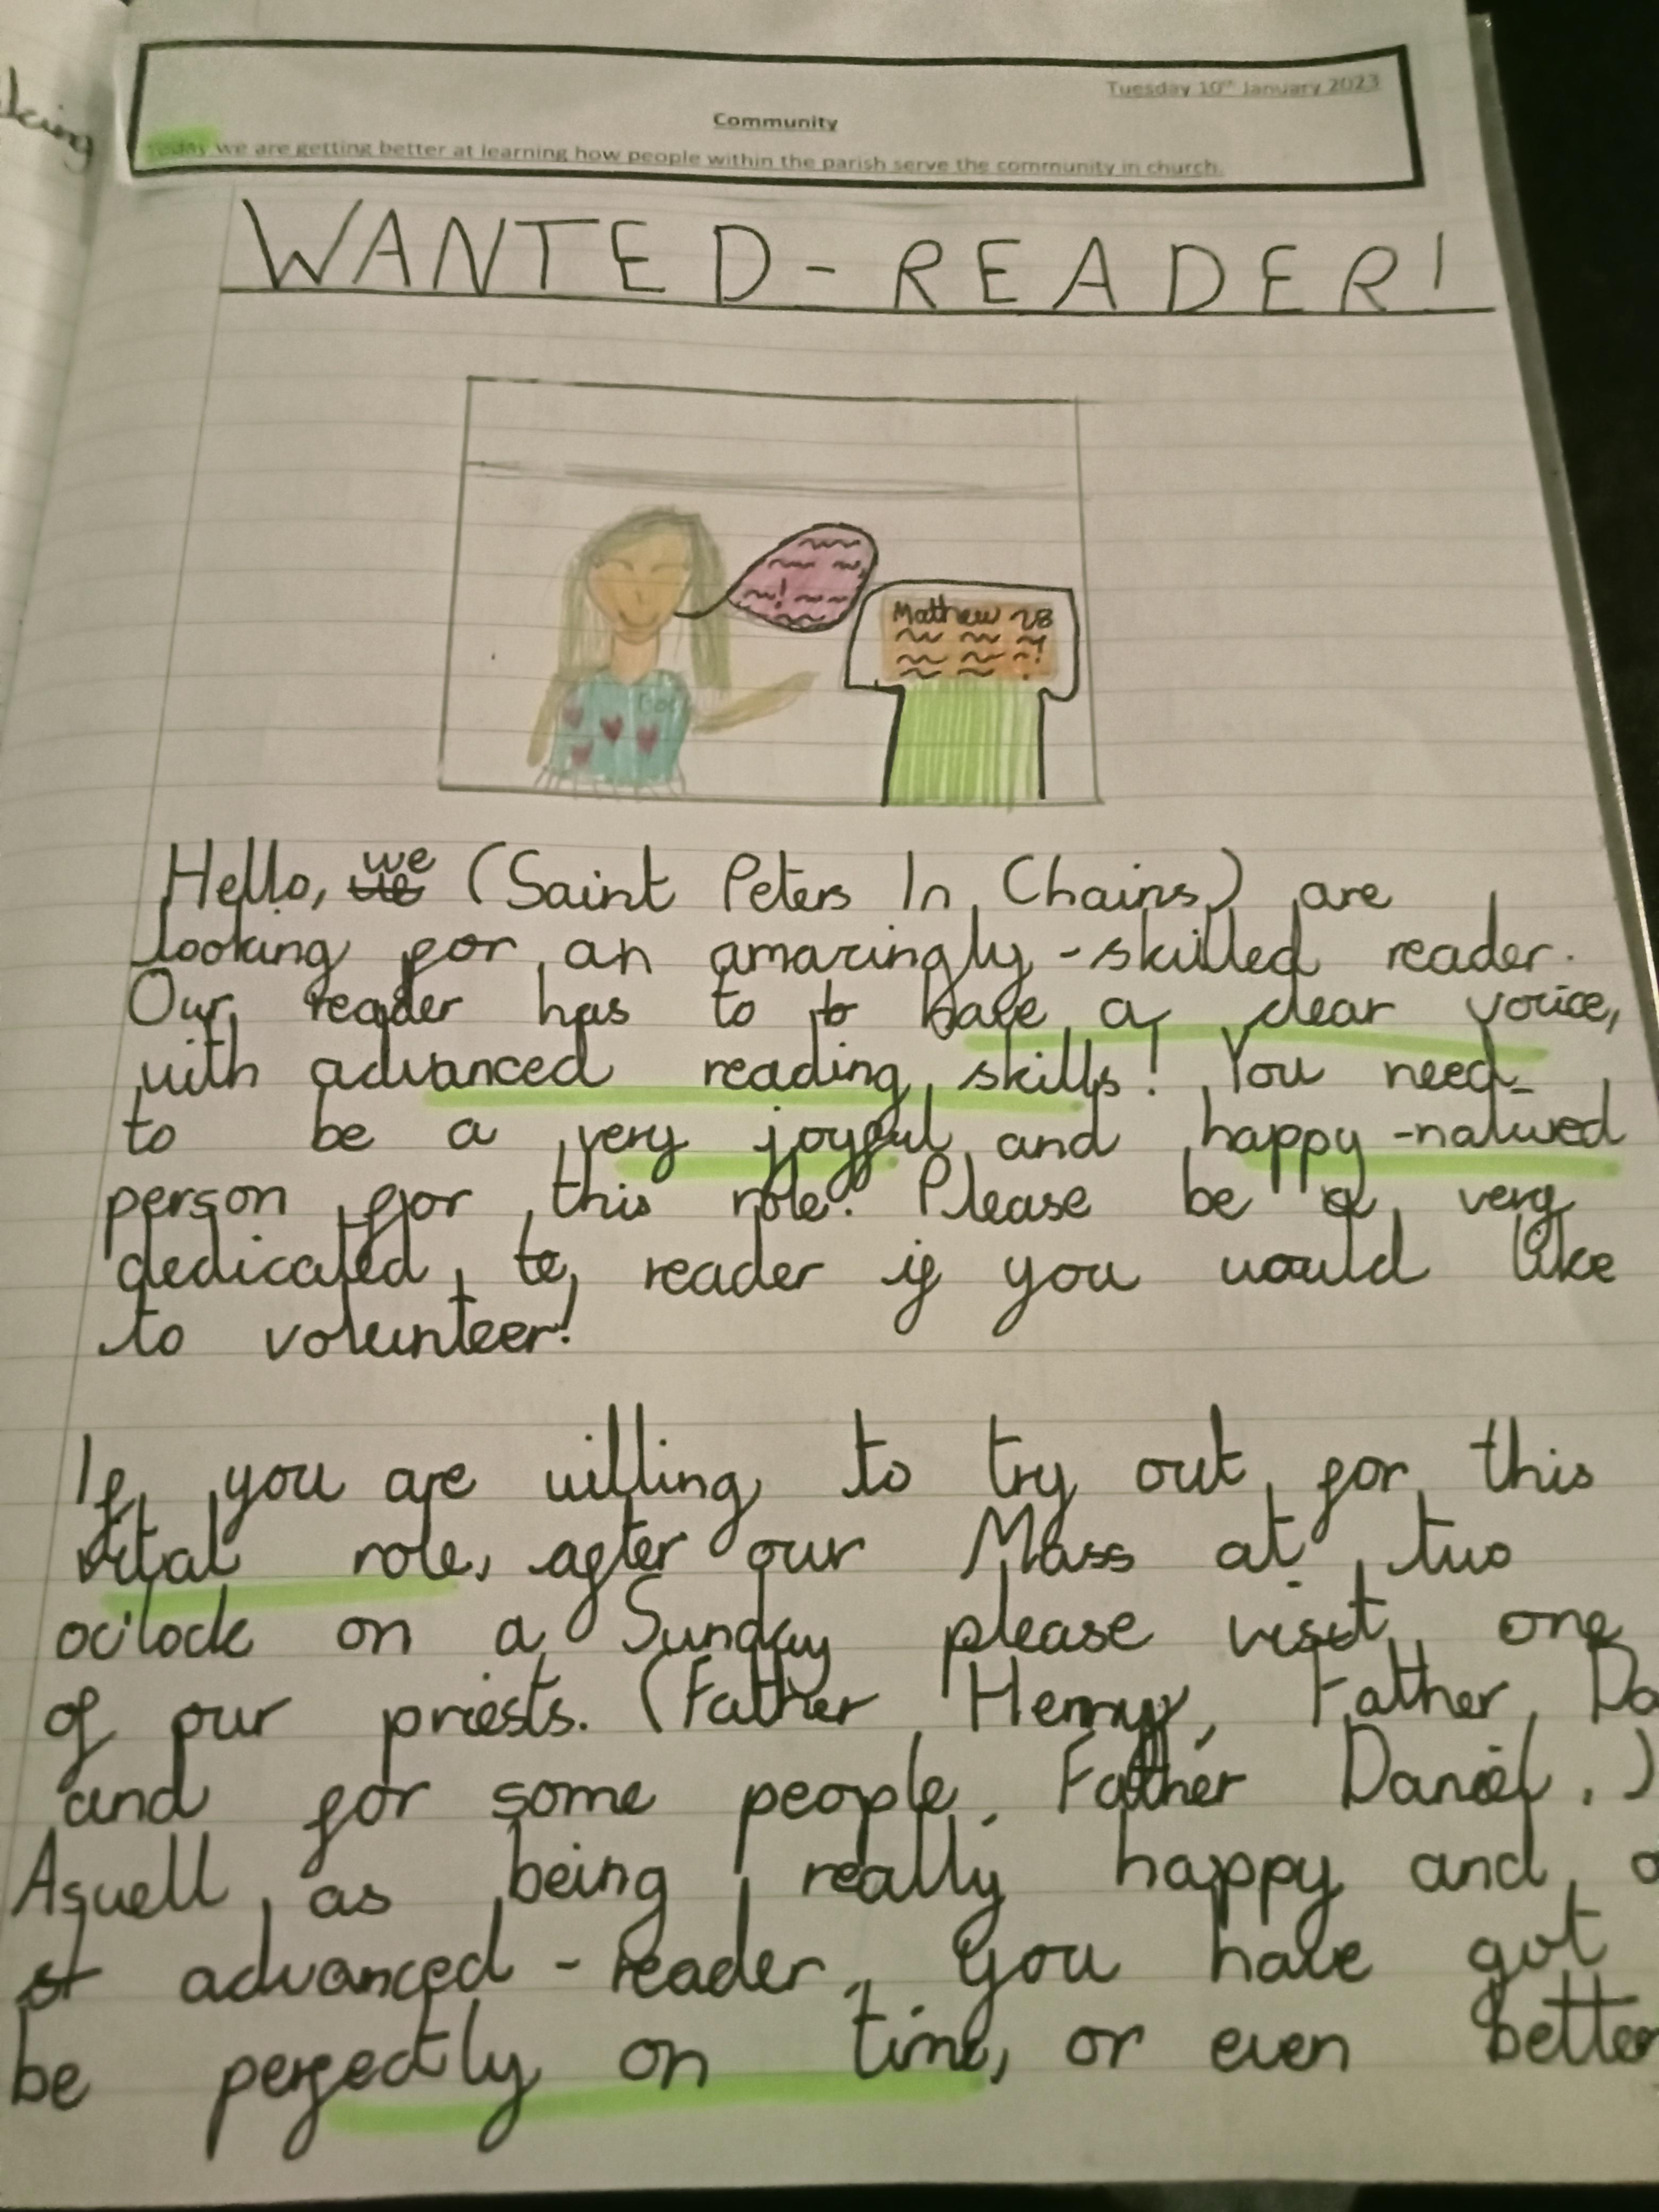 king
Tuesday 10th January 2023
Community
Today we are getting better at learning how people within the parish serve the community in church.
WANTED - READER!
Mathew 28
Hello, we (Saint Peters In Chains) are
looking for an amazingly - skilled reader.
Our reader has to have a clear voice,
with advanced reading skills! You need
to be a very joyful and happy - natured
person for this role. Please be a very
dedicated reader if you would like
to volunteer!
If you are willing to try out for this
vital role, after our Mass at two
oc'lock on a Sunday please visit one
of our priests. (Father Henry, Father Da
and for some people, Father Daniel.)
Aswell as being really happy and a
advanced - reader, you have got
be perfectly on time, or even better